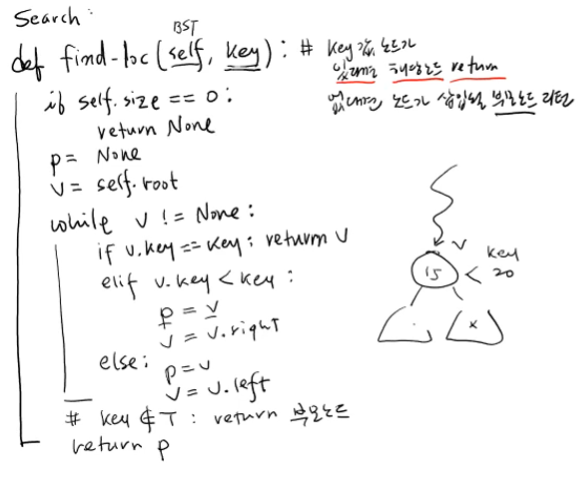 Search:
BST
def find-loc(self, key): # key값 노드가
있다면 해당노드 return
없다면 노드가 삽입될 부모노드 리턴
if self.size == 0:
return None
p = None
v = self.root
while v != None:
if v.key == key: return v
elif v.key < key:
p = v
v = v.right
else: p = v
v = v.left
# key ∉ T : return 부모노드
return p
v
15 < key
20
x